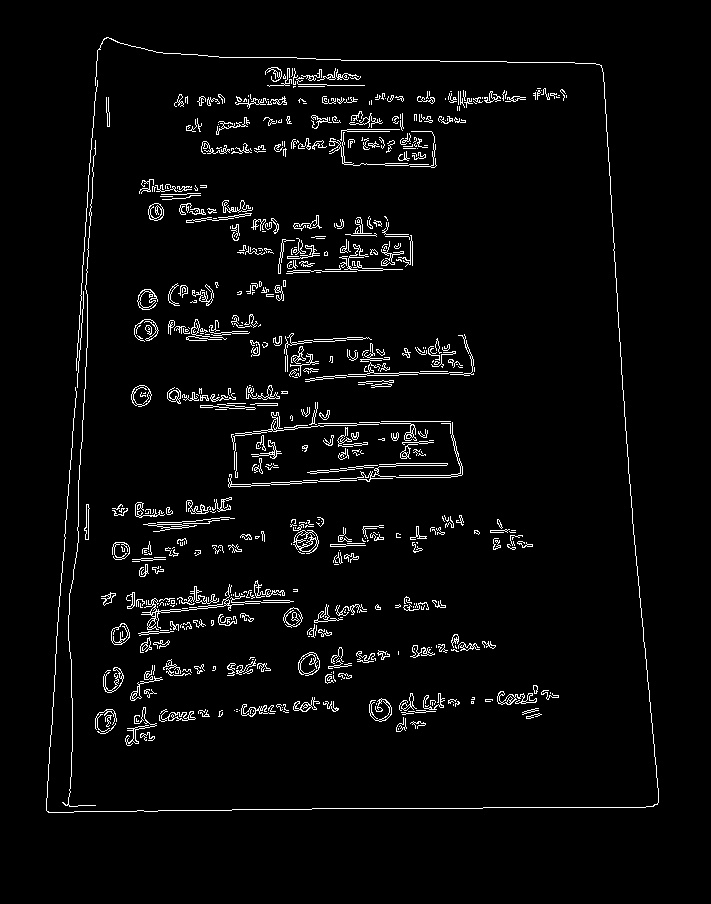 Differentiation
If f(x) represent a curve, then its differentiation f'(x)
at point x=c gives slope of the curve
Derivative of f at x ⇒ f'(x) = dy/dx
Theorems:-
① Chain Rule
y = f(u) and u = g(x)
then dy/dx = dy/du × du/dx
② (f±g)' = f'±g'
③ Product Rule
y = uv
dy/dx = u dv/dx + v du/dx
④ Quotient Rule-
y = u/v
dy/dx = v du/dx - u dv/dx / v²
☆ Basic Results
① d/dx xⁿ = n xⁿ⁻¹ d/dx √x = 1/2 x^(1/2-1) = 1/2√x
☆ Trigonometric functions-
① d/dx sin x = cos x ② d/dx cos x = - sin x
③ d/dx tan x = sec² x ④ d/dx sec x = sec x tan x
⑤ d/dx cosec x = -cosec x cot x ⑥ d/dx cot x = - cosec² x